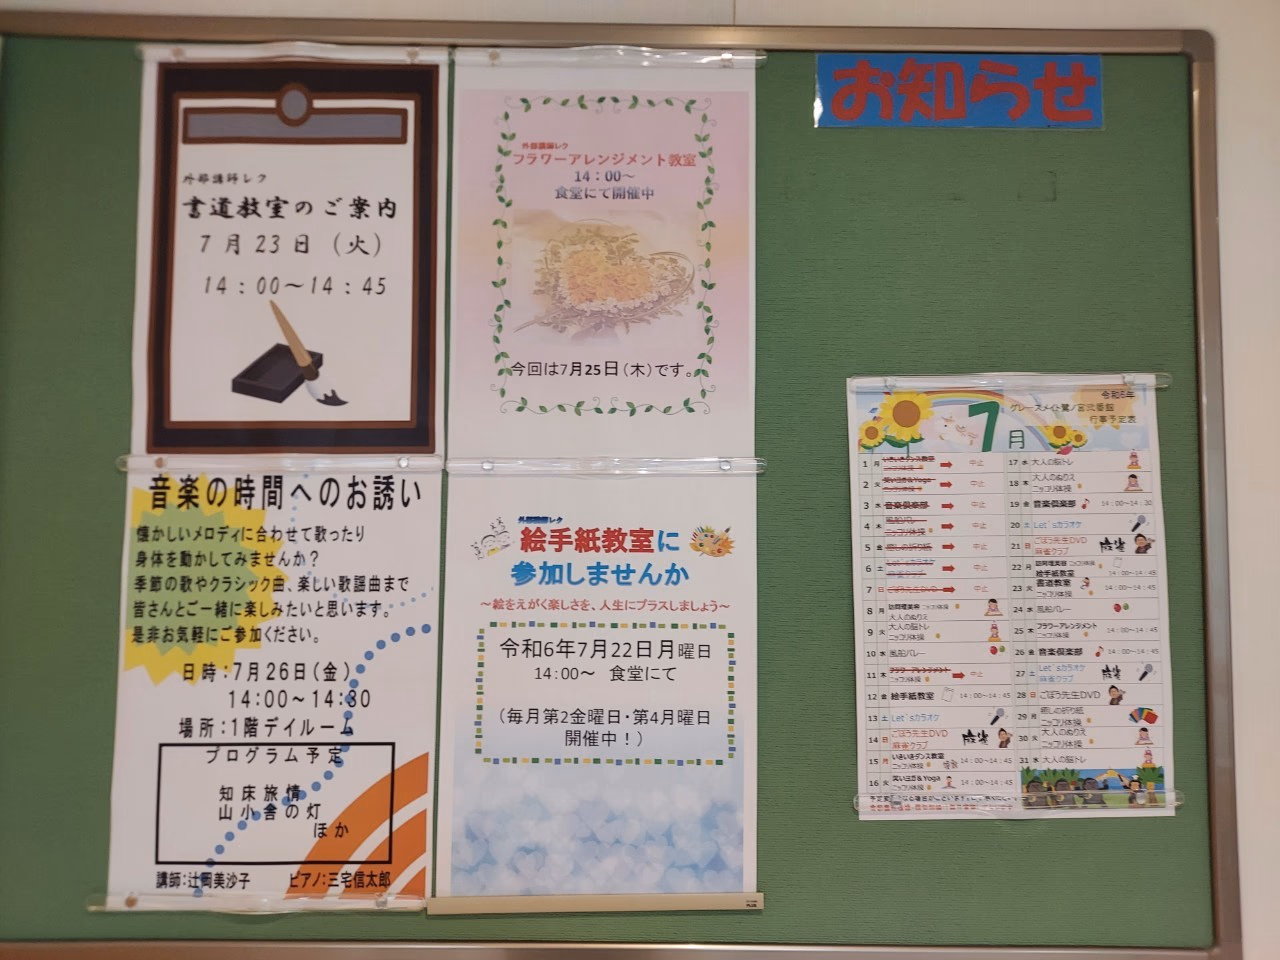 お知らせ
外部講師レク
書道教室のご案内
7月23日（火）
14：00～14：45
外部講師レク
フラワーアレンジメント教室
14：00～
食堂にて開催中
今回は7月25日（木）です。
音楽の時間へのお誘い
懐かしいメロディに合わせて歌ったり
身体を動かしてみませんか？
季節の歌やクラシック曲、楽しい歌謡曲まで
皆さんとご一緒に楽しみたいと思います。
是非お気軽にご参加ください。
日時：7月26日（金）
14：00～14：30
場所：1階デイルーム
プログラム予定
知床旅情
山小舎の灯
ほか
講師：辻岡美沙子　ピアノ：三宅信太郎
外部講師レク
絵手紙教室に
参加しませんか
～絵をえがく楽しさを、人生にプラスしましょう～
令和6年7月22日月曜日
14：00～　食堂にて
（毎月第2金曜日・第4月曜日
開催中！）
令和6年
7月
グレースメイト鷺ノ宮弐番館
行事予定表
1 月 いきいきダンス教室 ニッコリ体操 中止
2 火 笑いヨガ＆Yoga ニッコリ体操 中止
3 水 音楽倶楽部 中止
4 木 風船バレー ニッコリ体操 中止
5 金 癒しの折り紙 中止
6 土 Let`sカラオケ 麻雀クラブ 中止
7 日 ごぼう先生DVD 中止
8 月 訪問理美容 ニッコリ体操
大人のぬりえ
9 火 大人の脳トレ
ニッコリ体操
10 水 風船バレー
11 木 フラワーアレンジメント ニッコリ体操 中止
12 金 絵手紙教室 14：00～14：45
13 土 Let`sカラオケ
14 日 ごぼう先生DVD
麻雀クラブ 麻雀
15 月 いきいきダンス教室
ニッコリ体操 14：00～14：45
16 火 笑いヨガ＆Yoga
ニッコリ体操 14：00～14：45
17 水 大人の脳トレ
18 木 大人のぬりえ
ニッコリ体操
19 金 音楽倶楽部 14：00～14：30
20 土 Let`sカラオケ
21 日 ごぼう先生DVD
麻雀クラブ 麻雀
22 月 訪問理美容 ニッコリ体操
絵手紙教室 14：00～14：45
23 火 書道教室
ニッコリ体操 14：00～14：45
24 水 風船バレー
25 木 フラワーアレンジメント
ニッコリ体操 14：00～14：45
26 金 音楽倶楽部 14：00～14：30
27 土 Let`sカラオケ
麻雀クラブ 麻雀
28 日 ごぼう先生DVD
29 月 癒しの折り紙
ニッコリ体操
30 火 大人のぬりえ
ニッコリ体操
31 水 大人の脳トレ